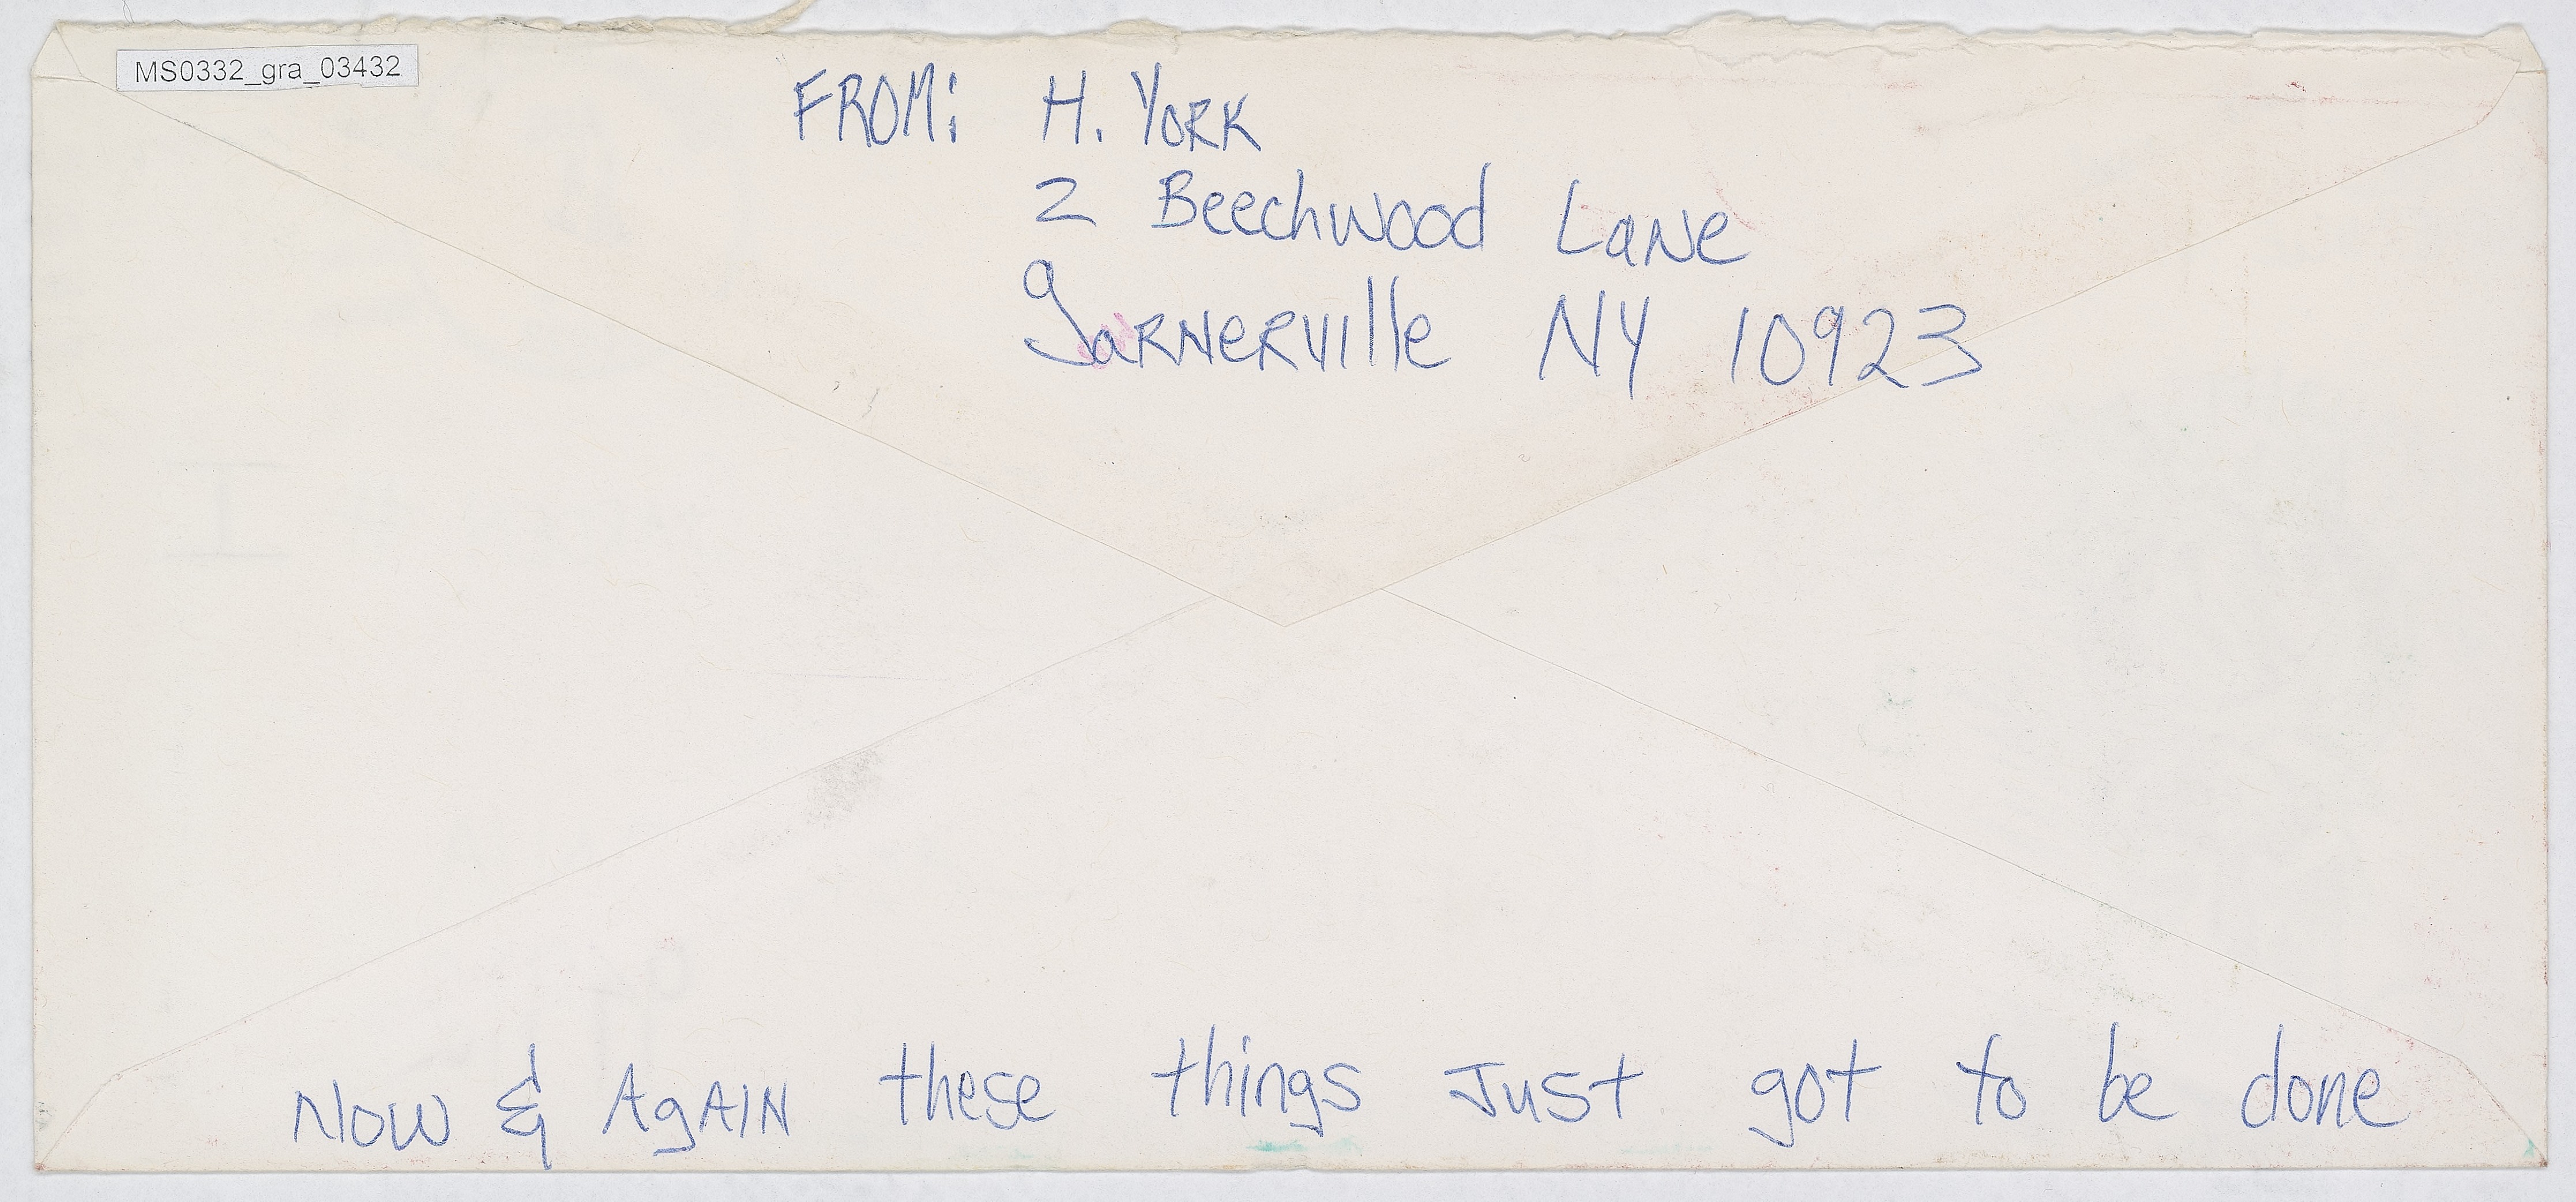 MS0332_gra_03432
FROM: H. YORK
2 Beechwood Lane
garnerville NY 10923
Now & Again these things Just got to be done